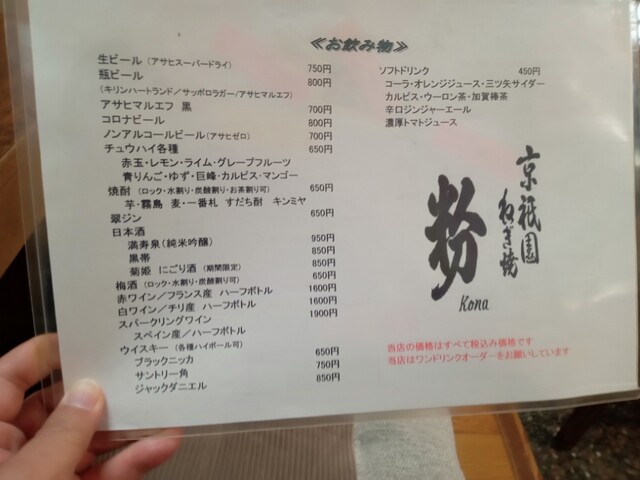 ≪お飲み物≫
生ビール（アサヒスーパードライ） 750円
瓶ビール 800円
（キリンハートランド／サッポロラガー／アサヒマルエフ）
アサヒマルエフ 黒 700円
コロナビール 800円
ノンアルコールビール（アサヒゼロ） 700円
チュウハイ各種 650円
赤玉・レモン・ライム・グレープフルーツ
青りんご・ゆず・巨峰・カルピス・マンゴー
焼酎（ロック・水割り・炭酸割り・お茶割り可） 650円
芋・霧島 麦・一番札 すだち酎 キンミヤ
翠ジン 650円
日本酒
満寿泉（純米吟醸） 950円
黒帯 850円
菊姫 にごり酒（期間限定） 850円
梅酒（ロック・水割り・炭酸割り可） 650円
赤ワイン／フランス産 ハーフボトル 1600円
白ワイン／チリ産 ハーフボトル 1600円
スパークリングワイン 1900円
スペイン産／ハーフボトル
ウイスキー（各種ハイボール可）
ブラックニッカ 650円
サントリー角 750円
ジャックダニエル 850円
ソフトドリンク 450円
コーラ・オレンジジュース・三ツ矢サイダー
カルピス・ウーロン茶・加賀棒茶
辛口ジンジャーエール
濃厚トマトジュース
京祇園
ねぎ焼
粉
Kona
当店の価格はすべて税込み価格です
当店はワンドリンクオーダーをお願いしています